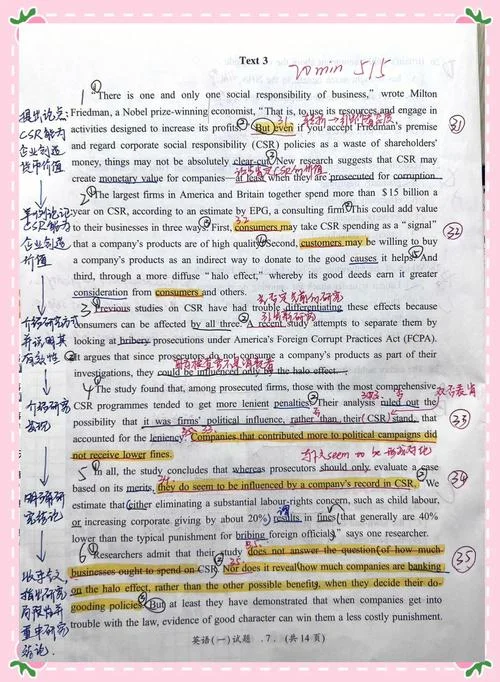 Text 3
20min 5/5
1 "There is one and only one social responsibility of business," wrote Milton
Friedman, a Nobel prize-winning economist, "That is, to use its resources and engage in
activities designed to increase its profits." But even if you accept Friedman's premise
and regard corporate social responsibility (CSR) policies as a waste of shareholders'
money, things may not be absolutely clear-cut. New research suggests that CSR may
create monetary value for companies — at least when they are prosecuted for corruption.
2 The largest firms in America and Britain together spend more than $15 billion a
year on CSR, according to an estimate by EPG, a consulting firm. This could add value
to their businesses in three ways. First, consumers may take CSR spending as a "signal"
that a company's products are of high quality. Second, customers may be willing to buy
a company's products as an indirect way to donate to the good causes it helps. And
third, through a more diffuse "halo effect," whereby its good deeds earn it greater
consideration from consumers and others.
3 Previous studies on CSR have had trouble differentiating these effects because
consumers can be affected by all three. A recent study attempts to separate them by
looking at bribery prosecutions under America's Foreign Corrupt Practices Act (FCPA).
It argues that since prosecutors do not consume a company's products as part of their
investigations, they could be influenced only by the halo effect.
4 The study found that, among prosecuted firms, those with the most comprehensive
CSR programmes tended to get more lenient penalties. Their analysis ruled out the
possibility that it was firms' political influence, rather than their CSR stand, that
accounted for the leniency: Companies that contributed more to political campaigns did
not receive lower fines.
5 In all, the study concludes that whereas prosecutors should only evaluate a case
based on its merits, they do seem to be influenced by a company's record in CSR. "We
estimate that either eliminating a substantial labour-rights concern, such as child labour,
or increasing corporate giving by about 20% results in fines that generally are 40%
lower than the typical punishment for bribing foreign officials," says one researcher.
6 Researchers admit that their study does not answer the question of how much
businesses ought to spend on CSR. Nor does it reveal how much companies are banking
on the halo effect, rather than the other possible benefits, when they decide their do-
gooding policies. But at least they have demonstrated that when companies get into
trouble with the law, evidence of good character can win them a less costly punishment.
英语(一)试题 . 7 . (共14页)
提出论点:
CSR能为
企业创造
货币价值
CSR能为
企业创造
价值
介绍研究
31
32
33
34
35